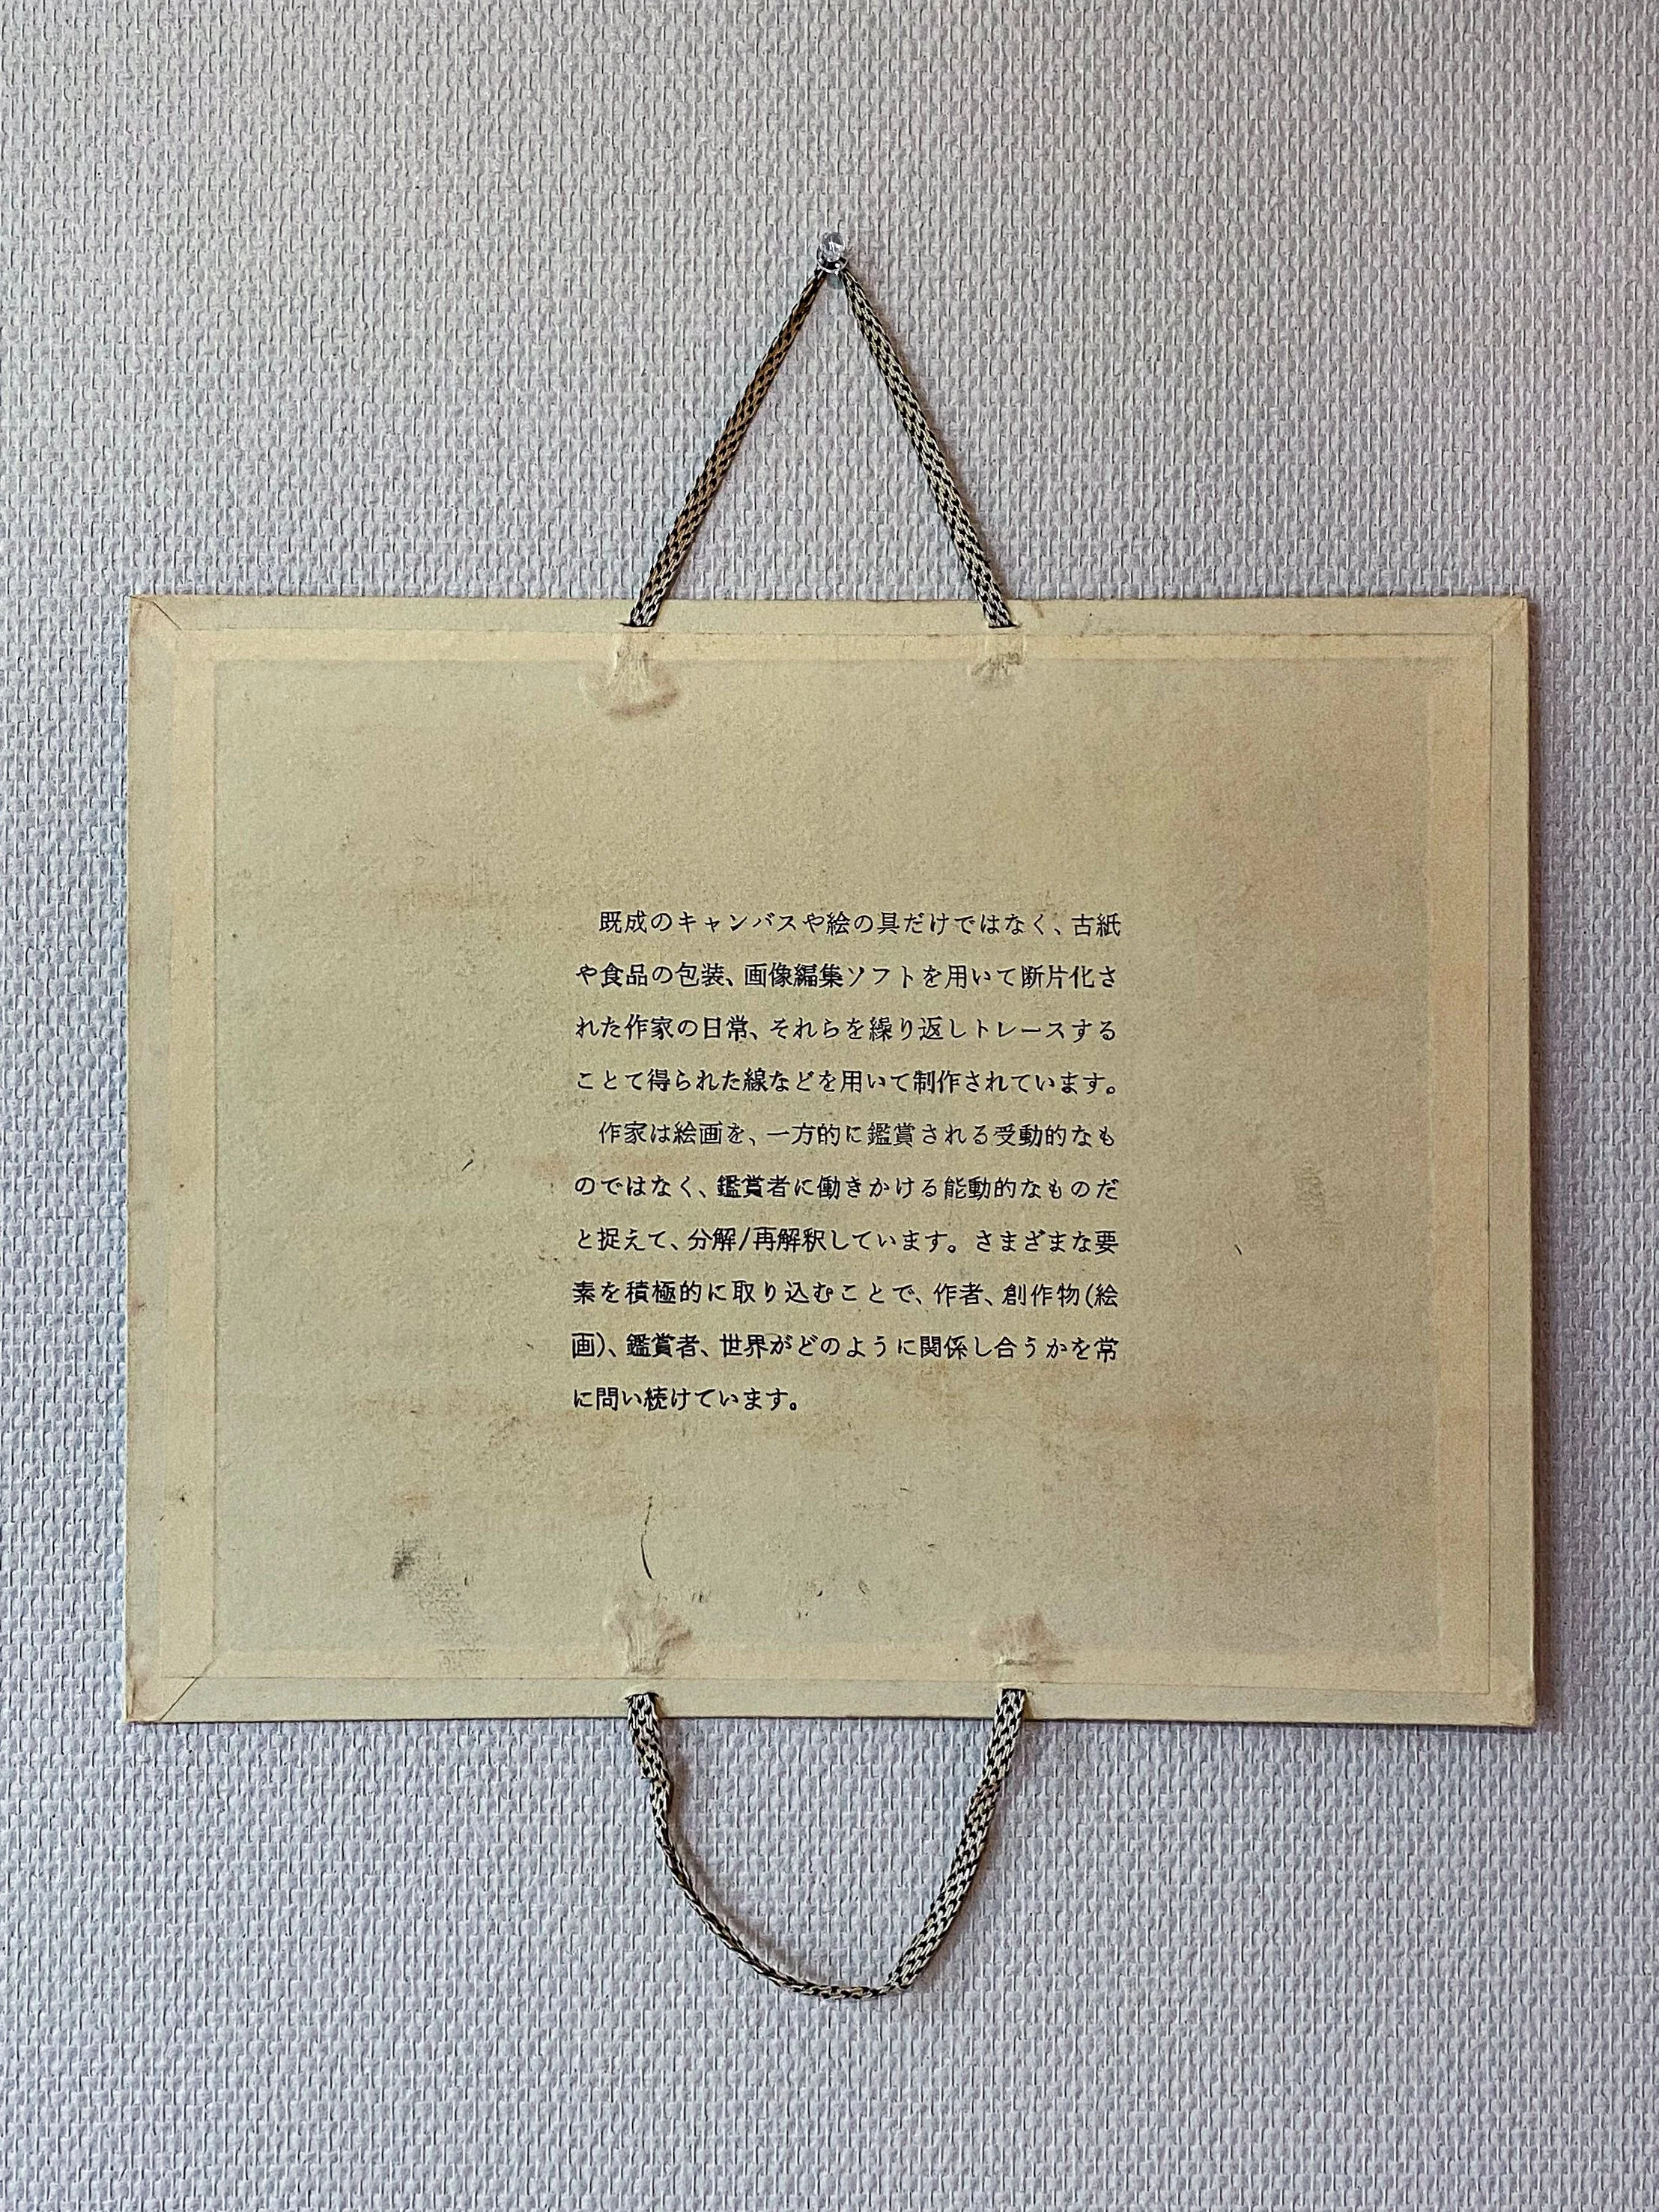 既成のキャンバスや絵の具だけではなく、古紙
や食品の包装、画像編集ソフトを用いて断片化さ
れた作家の日常、それらを繰り返しトレースする
ことて得られた線などを用いて制作されています。
作家は絵画を、一方的に鑑賞される受動的なも
のではなく、鑑賞者に働きかける能動的なものだ
と捉えて、分解/再解釈しています。さまざまな要
素を積極的に取り込むことで、作者、創作物(絵
画)、鑑賞者、世界がどのように関係し合うかを常
に問い続けています。